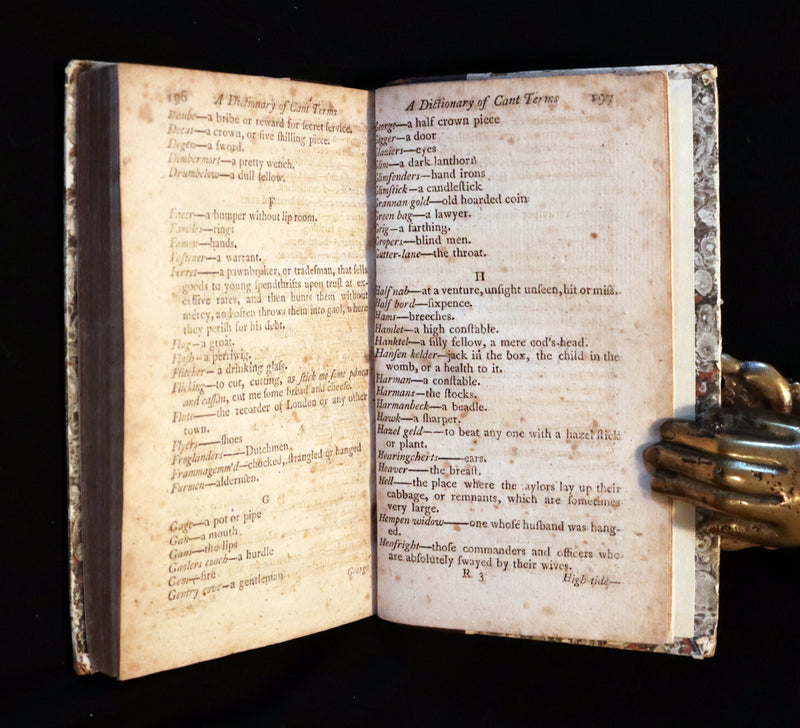 196
A Dictionary of Cant Terms
Daube—a bribe or reward for ſecret ſervice,
Decus—a crown, or five ſhilling piece.
Degen—a ſword.
Dimbermort—a pretty wench.
Drumbelow—a dull fellow.
F
Facer—a bumper without lip room.
Fambles—rings
Famms—hands.
Faſtener—a warrant.
Ferret—a pawnbroker, or tradeſman, that ſells
goods to young ſpendthrifts upon truſt at ex-
ceſſive rates, and then hunts them without
mercy, and often throws them into gaol, where
they periſh for his debt.
Flag—a groat.
Flaſh—a perriwig.
Flicker—a drinking glaſs.
Flicking—to cut, cutting, as flick me ſome panea
and caſſan, cut me ſome bread and cheeſe.
Flute—the recorder of London or any other
town.
Flyers—ſhoes
Froglanders—Dutchmen
Frammagemm'd—chocked, ſtrangled or hanged
Furmen—aldermen.
G
Gage—a pot or pipe
Gan—a mouth
Gans—the lips
Gaolers coach—a hurdle
Gem—fire
Gentry cove—a gentleman
George
A Dictionary of Cant Terms
197
George—a half crown piece
Gigger—a door
Glaziers—eyes
Glim—a dark lanthorn
Glimfenders—hand irons
Glimſtick—a candleſtick
Grannan gold—old hoarded coin
Green bag—a lawyer.
Grig—a farthing.
Gropers—blind men.
Gutter-lane—the throat.
H
Half nab—at a venture, unſight unſeen, hit or miſs.
Half bord—ſixpence.
Hams—breeches.
Hamlet—a high conſtable.
Hanktel—a ſilly fellow, a mere cod's-head.
Hanſen kelder—jack in the box, the child in the
womb, or a health to it.
Harman—a conſtable.
Harmans—the ſtocks.
Harmanbeck—a beadle.
Hawk—a ſharper.
Hazel geld—to beat any one with a hazel ſtick
or plant.
Hearingcherts—ears.
Heaver—the breaſt.
Hell—the place where the aylors lay up their
cabbage, or remnants, which are ſometimes
very large.
Hempen widow—one whoſe huſband was hang-
ed.
Henfright—thoſe commanders and officers who
are abſolutely ſwayed by their wives.
R 3
High tide—